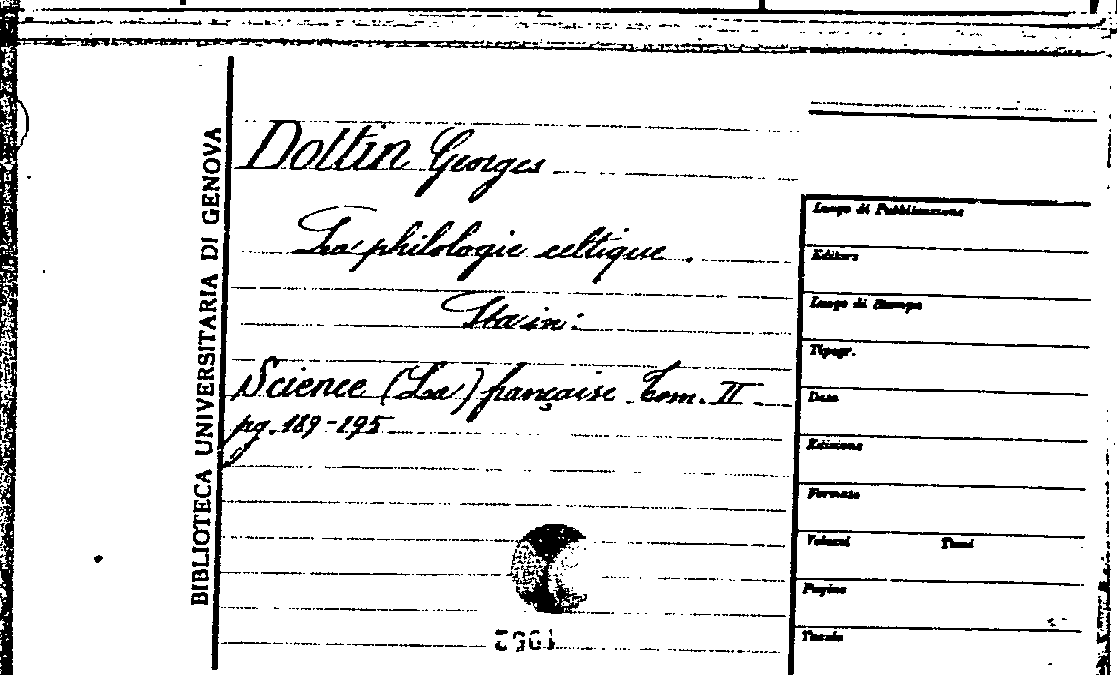 BIBLIOTECA UNIVERSITARIA DI GENOVA
Dottin Georges
La philologie celtique.
Sta in:
Science (La) française Tom. II
pg. 189-195
Luogo di Pubblicazione
Editore
Luogo di Stampa
Tipogr.
Data
Edizione
Formato
Volumi Tomi
Pagine
Tavole